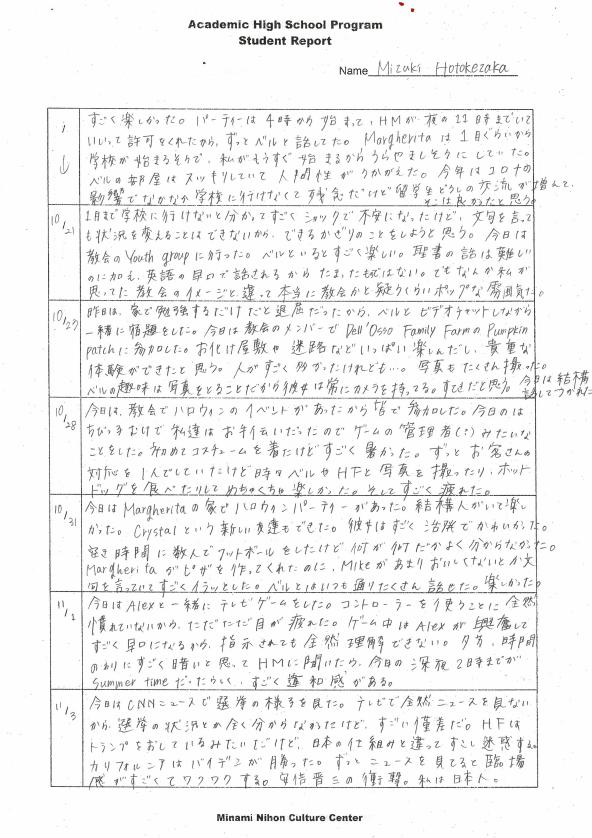 Academic High School Program
Student Report
Name Mizuki Hotokezaka
すごく楽しかった。パーティーは4時から始まって、HMが夜の11時までいて
いいって許可をくれたから、ずっとベルと話してた。Margheritaは1日ぐらいから
学校が始まるそうで、私がもうすぐ始まるからうらやましそうにしていた。
ベルの部屋はスッキリしていて人間性がうかがえた。今年はコロナの
影響でなかなか学校に行けなくて残念だけど留学生どうしの交流が増えて、
そこは良かったと思う。
10/21 1月まで学校に行けないと分かってすごくショックで不安になったけど、文句を言って
も状況を変えることはできないから、できるかぎりのことをしようと思う。今日は
教会のYouth groupに行った。ベルといるとすごく楽しい。聖書の話は難しい
のに加え、英語の早口で話されるからたまったもんじゃない。でもなんか私が
思ってた教会のイメージと違って本当に教会かと疑うくらいポップな雰囲気だ。
10/27 昨日は、家で勉強するだけだと退屈だったから、ベルとビデオチャットしながら
一緒に宿題をした。今日は教会のメンバーでDell'Osso Family FarmのPumpkin
patchに参加した。お化け屋敷や迷路などいっぱい楽しんだし、貴重な
体験ができたと思う。人がすごく多かったけれども…。写真もたくさん撮った。
ベルの趣味は写真をとることだから彼女は常にカメラを持ってる。すてきだと思う。今日は結構
話してつかれた
10/28 今日は、教会でハロウィンのイベントがあったから皆で参加した。今日のは
ちびっ子むけで私達はお手伝いだったのでゲームの管理者(?)みたいな
ことをした。初めてコスチュームを着たけどすごく暑かった。ずっとお客さんの
対応を1人でしていたけど時々ベルやHFと写真を撮ったり、ホット
ドッグを食べたりしてめちゃくちゃ楽しかった。そしてすごく疲れた。
10/31 今日はMargheritaの家でハロウィンパーティーがあった。結構人がいて楽し
かった。Crystalという新しい友達もできた。彼女はすごく活発でかわいかった。
空き時間に数人でフットボールをしたけど何が何だかよく分からなかった。
Margheritaがピザを作ってくれたのに、Mikeがあまりおいしくないとか文
句を言っていてすごくイラッとした。ベルとはいつも通りたくさん話せた。楽しかった。
11/1 今日はAlexと一緒にテレビゲームをした。コントローラーを使うことに全然
慣れていないから、ただただ目が疲れた。ゲーム中はAlexが興奮して
すごく早口になるから、指示されても全然理解できない。夕方、時間
のわりにすごく暗いと思ってHMに聞いたら、今日の深夜2時までが
Summer timeだったらしく、すごく違和感がある。
11/3 今日はCNNニュースで選挙の様子を見た。テレビで全然ニュースを見ない
から、選挙の状況とか全く分からなかったけど、すごい僅差だ。HFは
トランプをおしているみたいだけど、日本の仕組みと違ってすこし迷惑する。
カリフォルニアはバイデンが勝った。ずっとニュースを見てると臨場
感がすごくてワクワクする。安倍晋三の衝撃。私は日本人。
Minami Nihon Culture Center